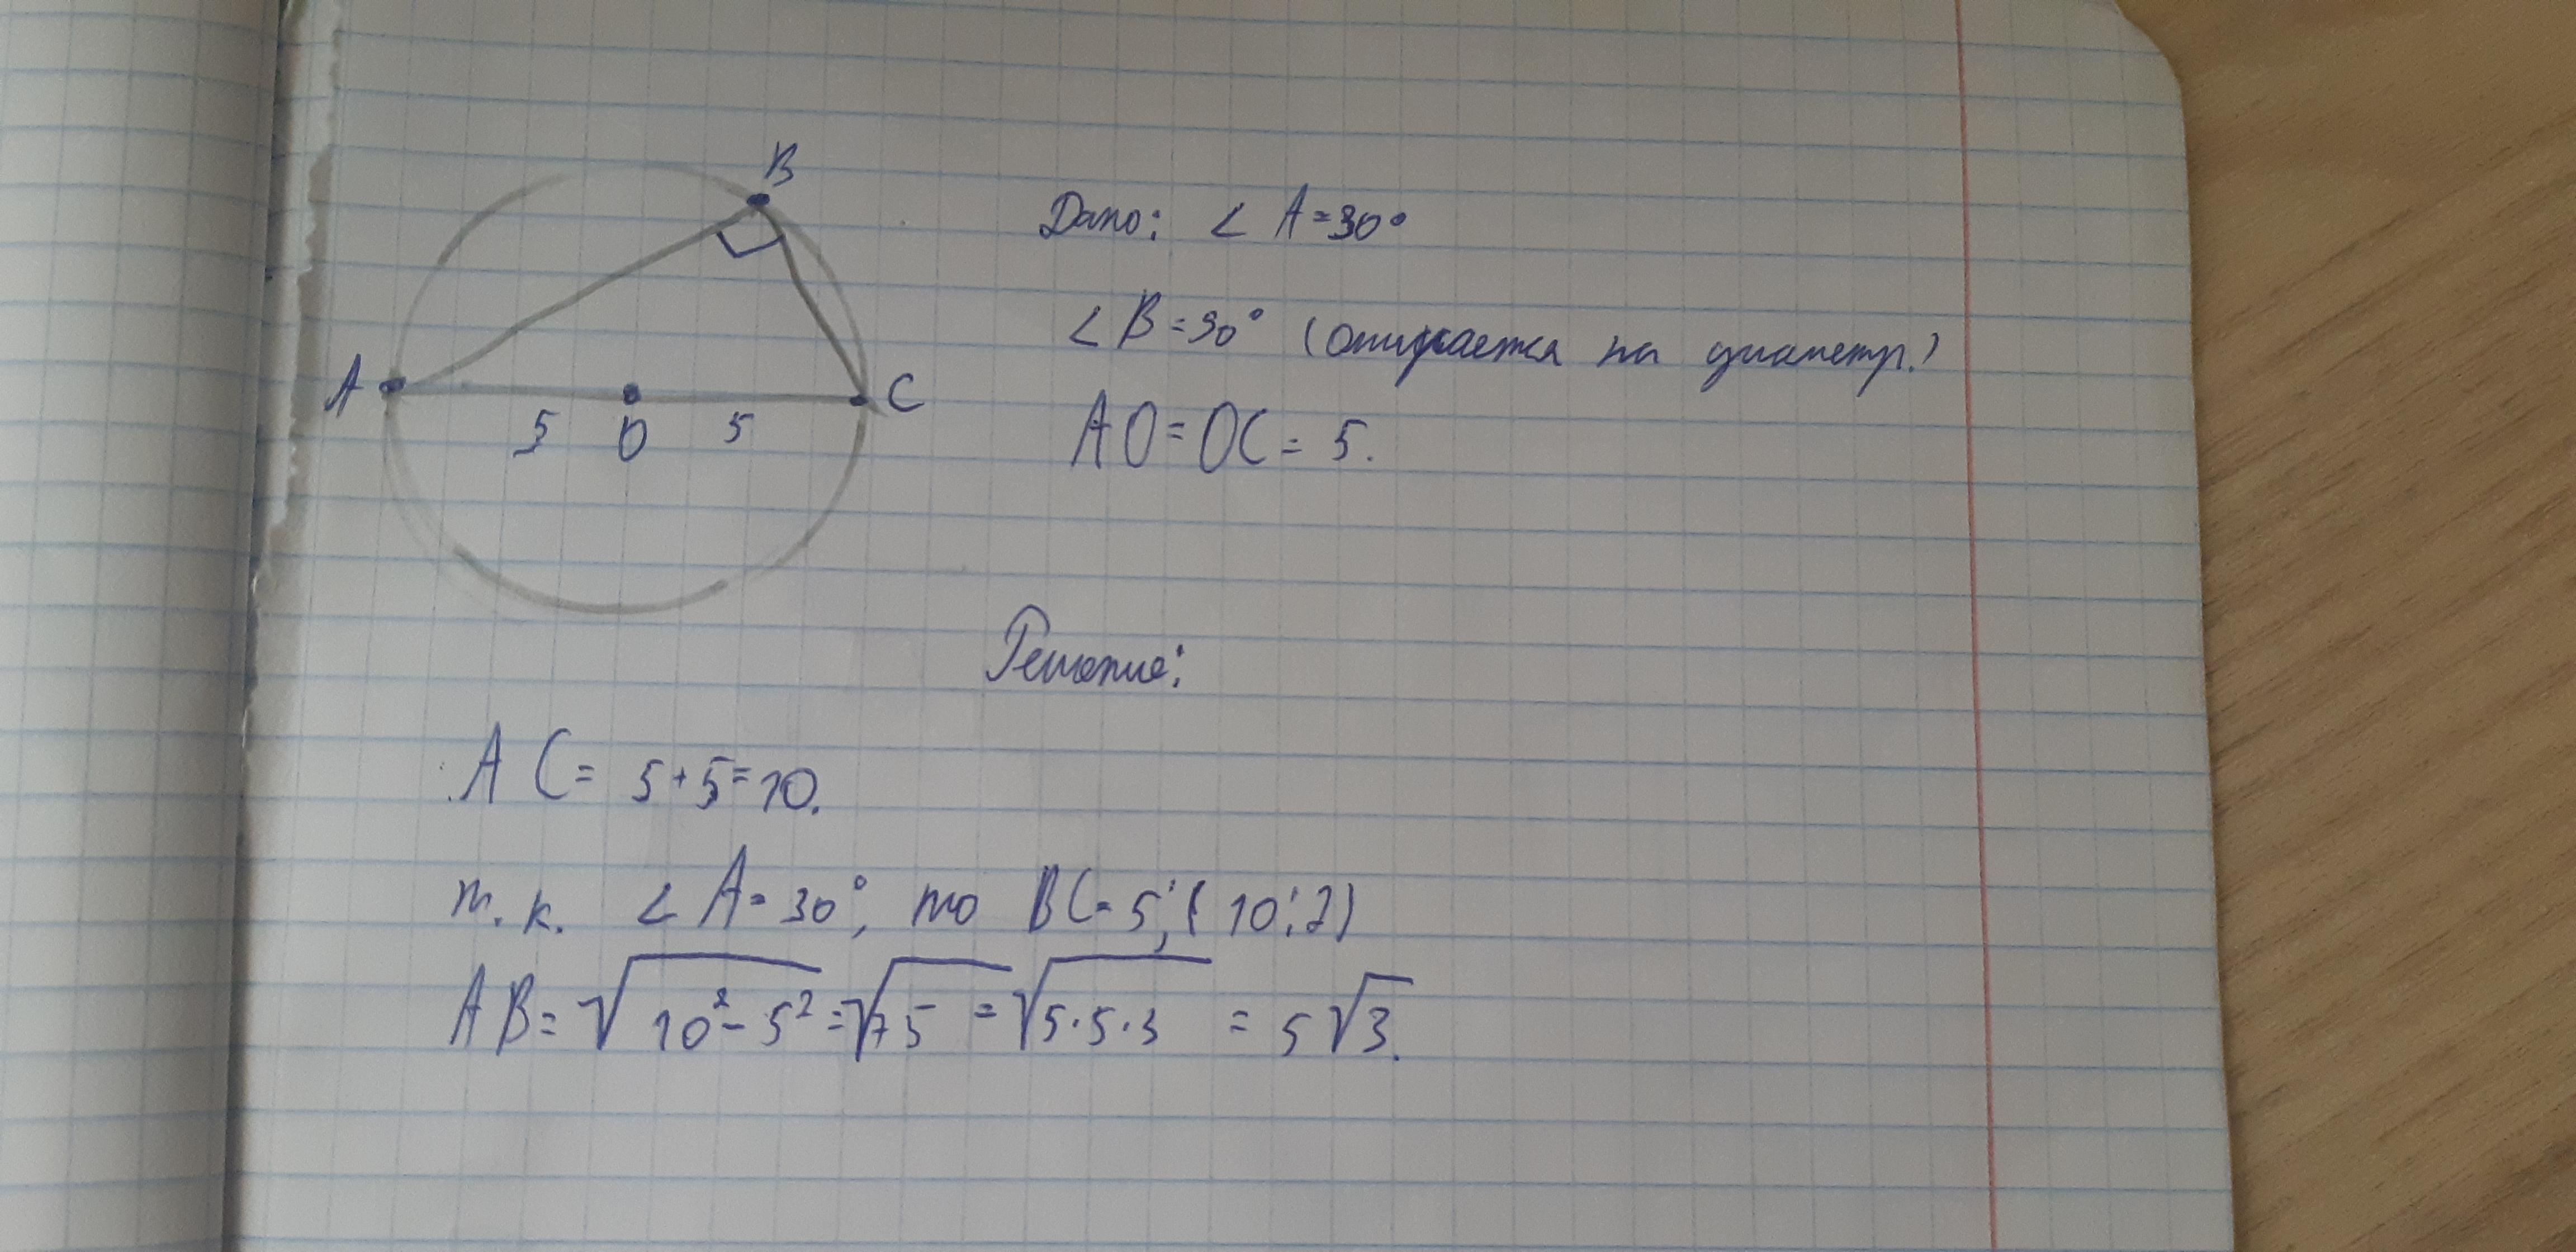 B
A
C
5 O 5
Дано: ∠ A=30°
∠ B=90° (опирается на диаметр.)
AO=OC= 5.
Решение:
AC= 5+5=10.
т.к. ∠ A=30°, то BC=5; (10:2)
AB= √(10²-5²) =√75 =√(5·5·3) = 5√3.